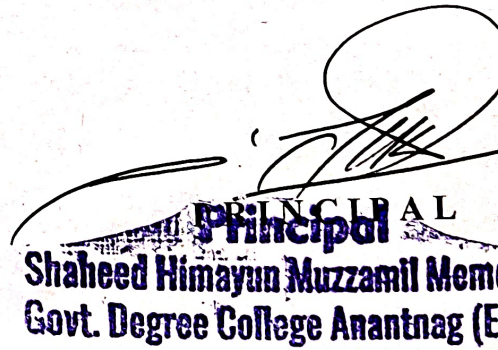 PRINCIPAL
Principal
Shaheed Himayun Muzzamil Memo
Govt. Degree College Anantnag (E